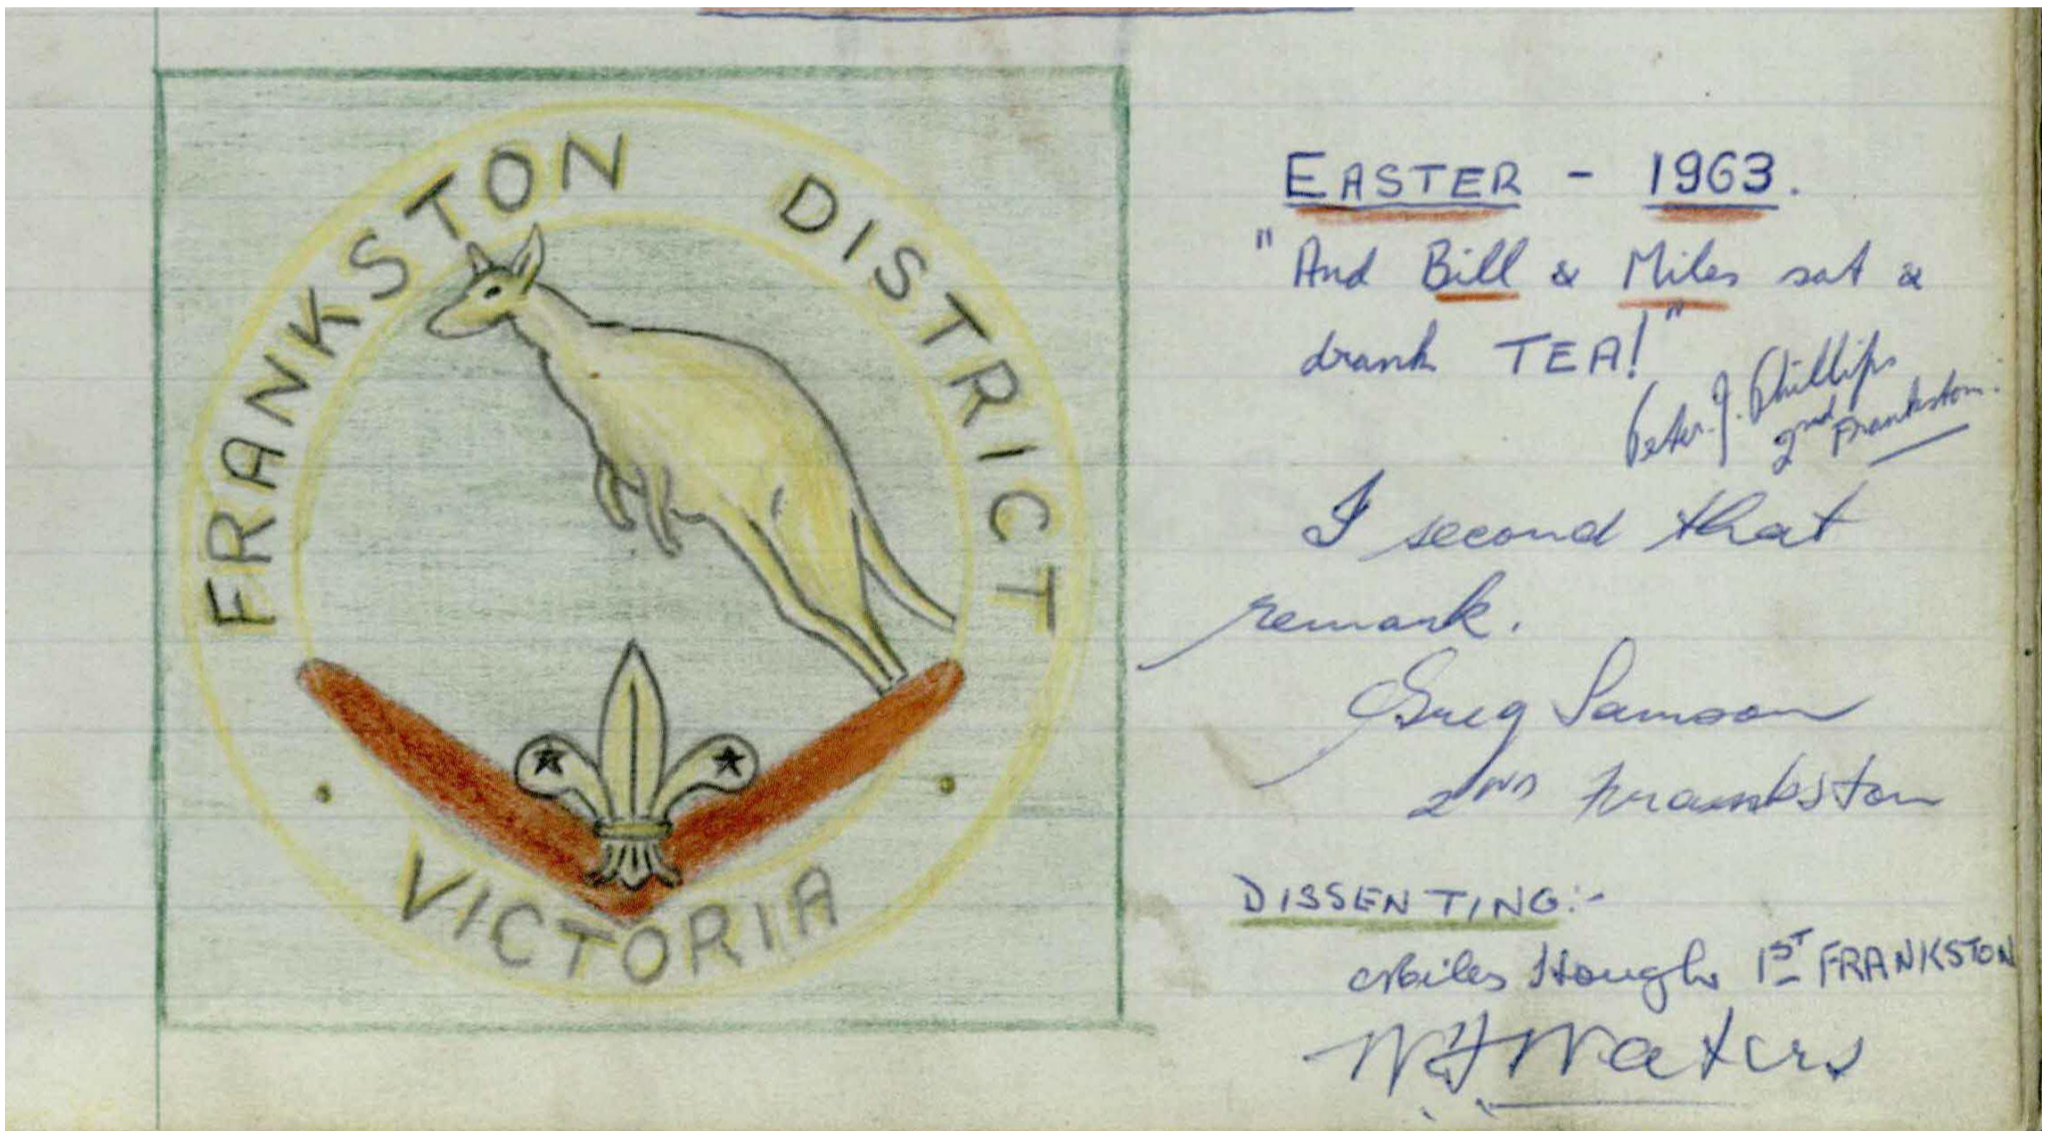 FRANKSTON DISTRICT
VICTORIA
EASTER - 1963.
"And Bill & Miles sat &
drank TEA!"
Peter. J. Phillips
2nd Frankston.
I second that
remark.
Greg Samson
2ND Frankston
DISSENTING:-
Miles Hough 1ST FRANKSTON
WFWaters